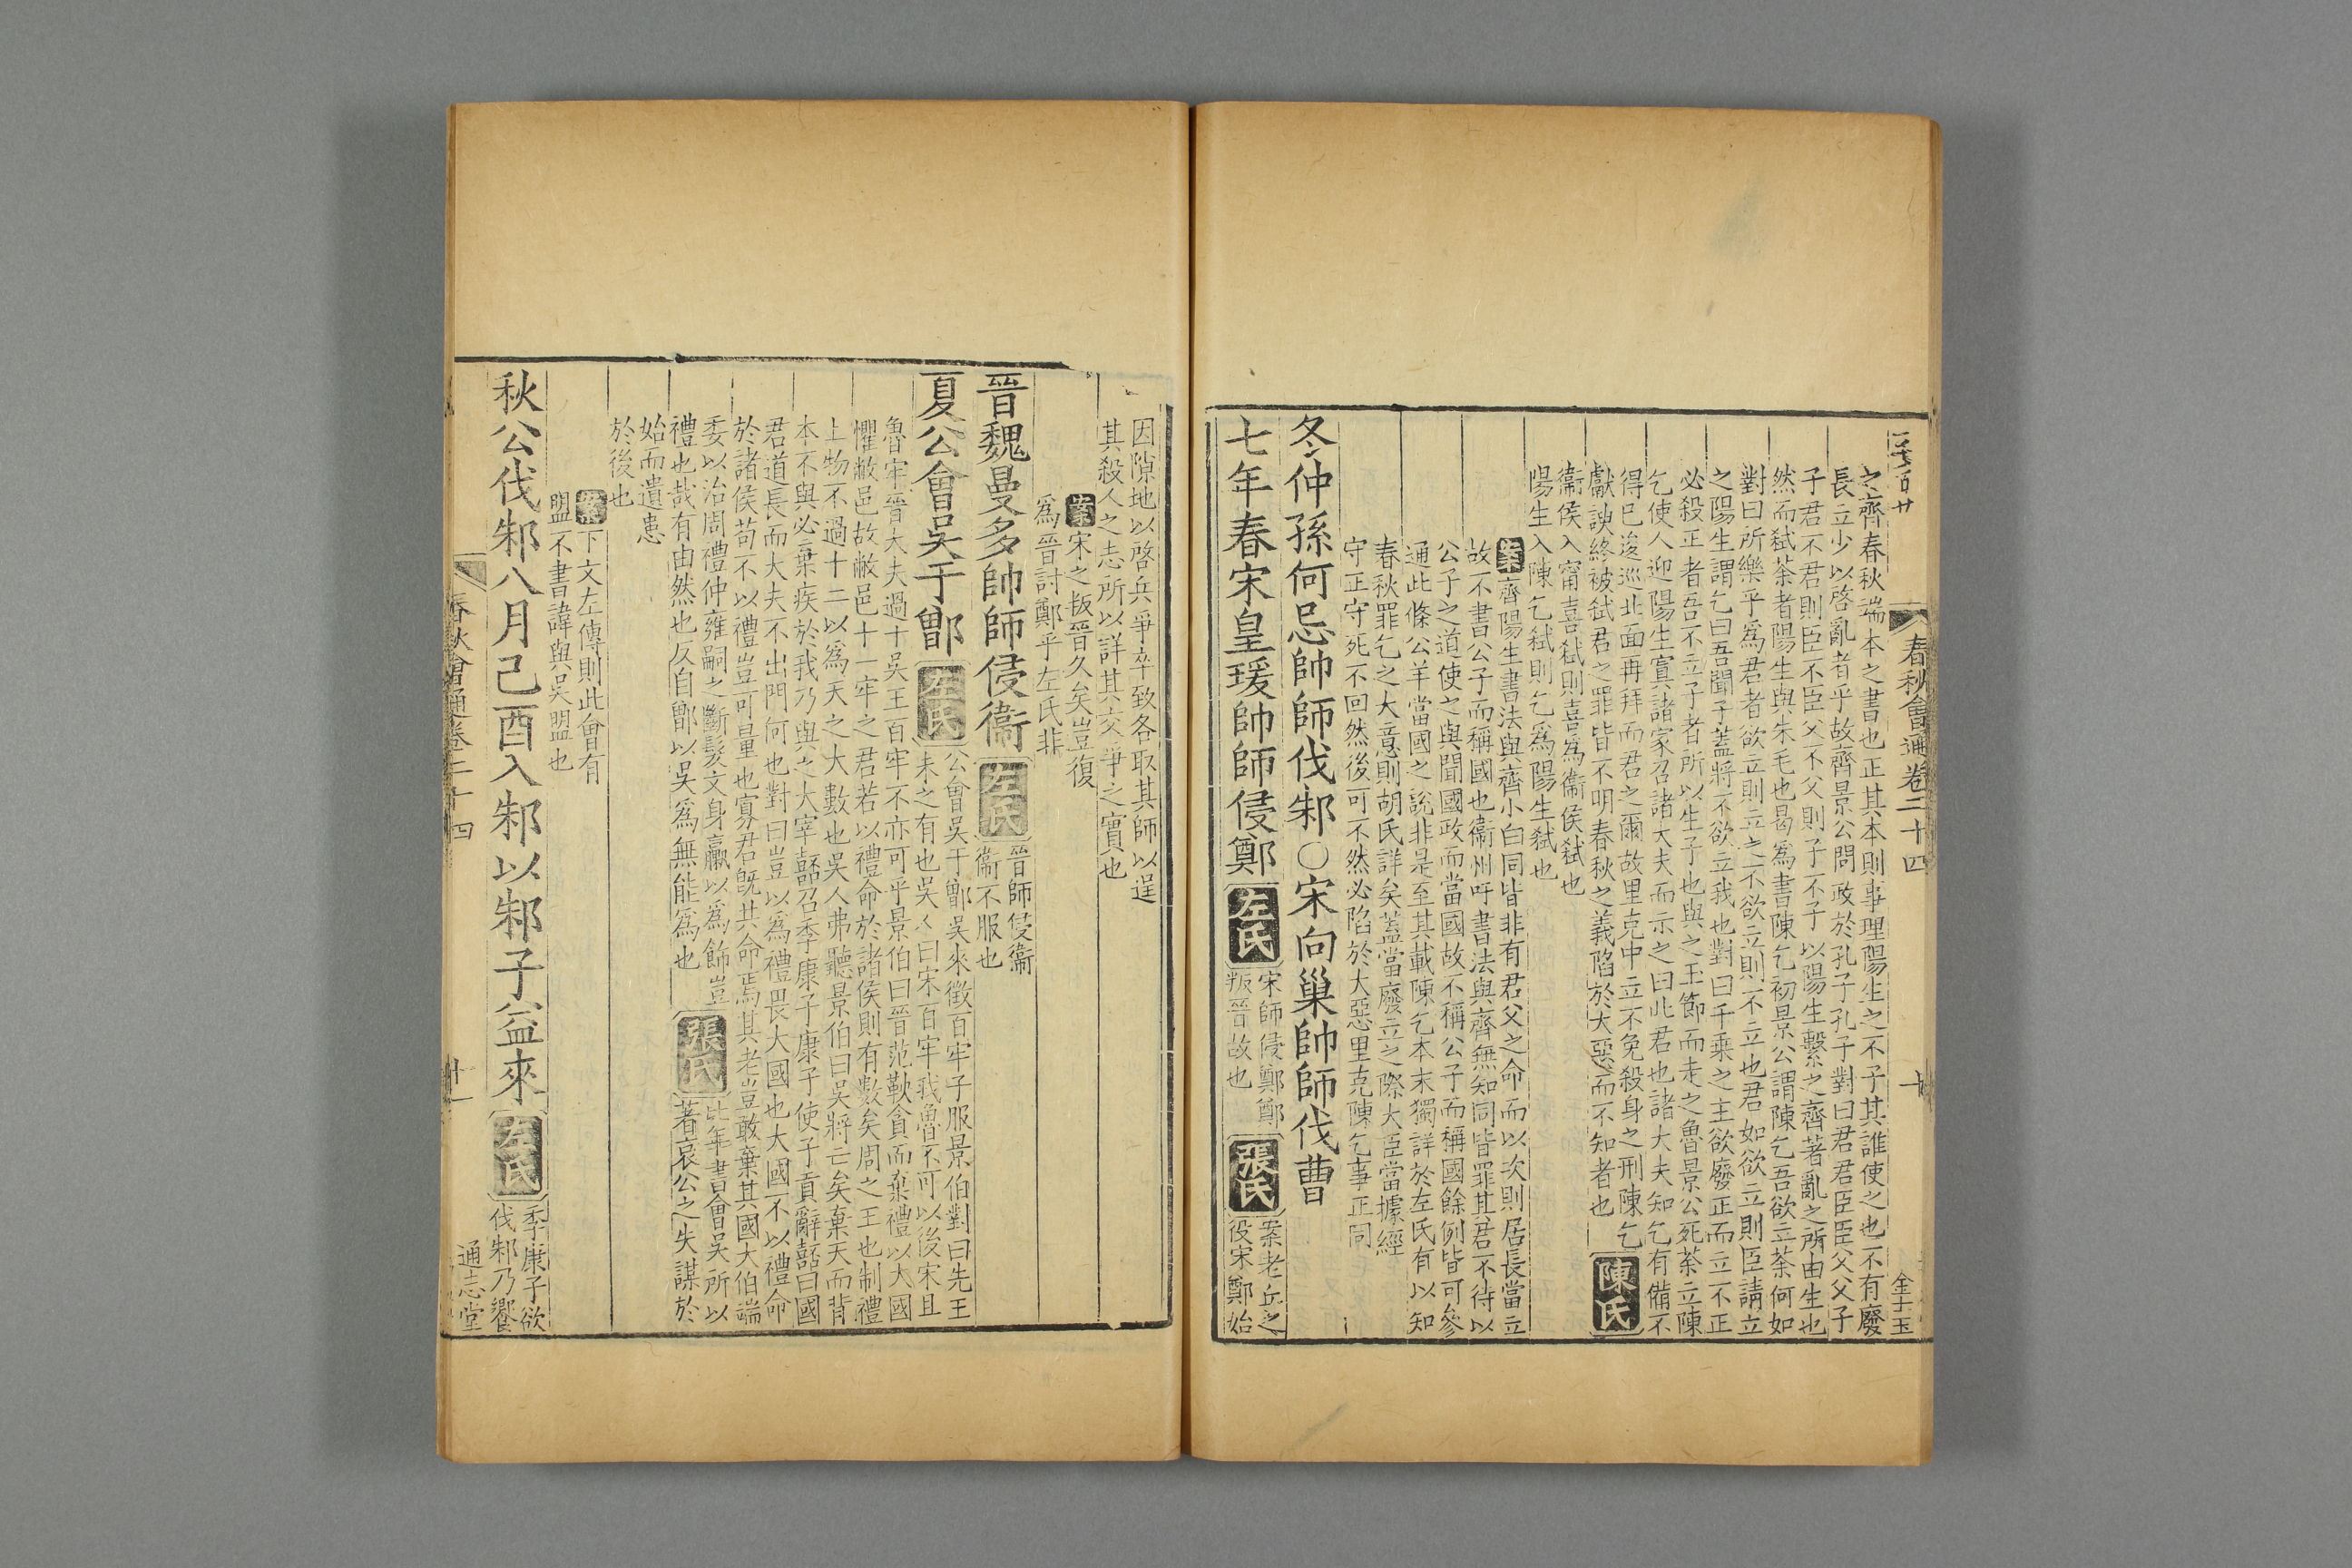 春秋會通卷二十四
十
之齊春秋端本之書也正其本則事理陽生之不子其誰使之也不有廢
長立少以啓亂者乎故齊景公問政於孔子孔子對曰君君臣臣父父子
子君不君則臣不臣父不父則子不子以陽生繫之齊著亂之所由生也
然而弑荼者陽生與朱毛也曷為書陳乞初景公謂陳乞吾欲立荼何如
對曰所樂乎為君者欲立則立之不欲立則不立也君如欲立則臣請立
之陽生謂乞曰吾聞子蓋將不欲立我也對曰千乘之主欲廢正而立不正
必殺正者吾不立子者所以生子也與之玉節而走之魯景公死荼立陳
乞使人迎陽生寘諸家召諸大夫而示之曰此君也諸大夫知乞有備不
得已逡巡北面再拜而君之爾故里克中立不免殺身之刑陳乞
獻諛終被弑君之罪皆不明春秋之義陷於大惡而不知者也 陳氏
衞侯入甯喜弑則喜為衞侯弑也
陽生入陳乞弑則乞為陽生弑也
案 齊陽生書法與齊小白同皆非有君父之命而以次則居長當立
故不書公子而稱國也衞州吁書法與齊無知同皆罪其君不待以
公子之道使之與聞國政而當國故不稱公子而稱國餘例皆可參
通此條公羊當國之說非是至其載陳乞本末獨詳於左氏有以知
春秋罪乞之大意則胡氏詳矣蓋當廢立之際大臣當據經
守正守死不回然後可不然必陷於大惡里克陳乞事正同
冬仲孫何忌帥師伐邾○宋向巢帥師伐曹
七年春宋皇瑗帥師侵鄭 左氏 宋師侵鄭鄭
叛晉故也 張氏 案老丘之
役宋鄭始
因隙地以啓兵爭卒致各取其師以逞
其殺人之志所以詳其交爭之實也
案 宋之叛晉久矣豈復
為晉討鄭乎左氏非
晉魏曼多帥師侵衞 左氏 晉師侵衞
衞不服也
夏公會吳于鄫 左氏 公會吳于鄫吳來徵百牢子服景伯對曰先王
未之有也吳人曰宋百牢我魯不可以後宋且
魯牢晉大夫過十吳王百牢不亦可乎景伯曰晉范鞅貪而棄禮以大國
懼敝邑故敝邑十一牢之君若以禮命於諸侯則有數矣周之王也制禮
上物不過十二以為天之大數也吳人弗聽景伯曰吳將亡矣棄天而背
本不與必棄疾於我乃與之大宰嚭召季康子康子使子貢辭嚭曰國
君道長而大夫不出門何也對曰豈以為禮畏大國也大國不以禮命
於諸侯苟不以禮豈可量也寡君旣共命焉其老豈敢棄其國大伯端
委以治周禮仲雍嗣之斷髮文身臝以為飾豈
禮也哉有由然也反自鄫以吳為無能為也 張氏 此年書會吳所以
著哀公之失謀於
始而遺患
於後也
案 下文左傳則此會有
盟不書諱與吳盟也
秋公伐邾八月己酉入邾以邾子益來 左氏 季康子欲
伐邾乃饗
春秋會通卷二十四
十一
通志堂